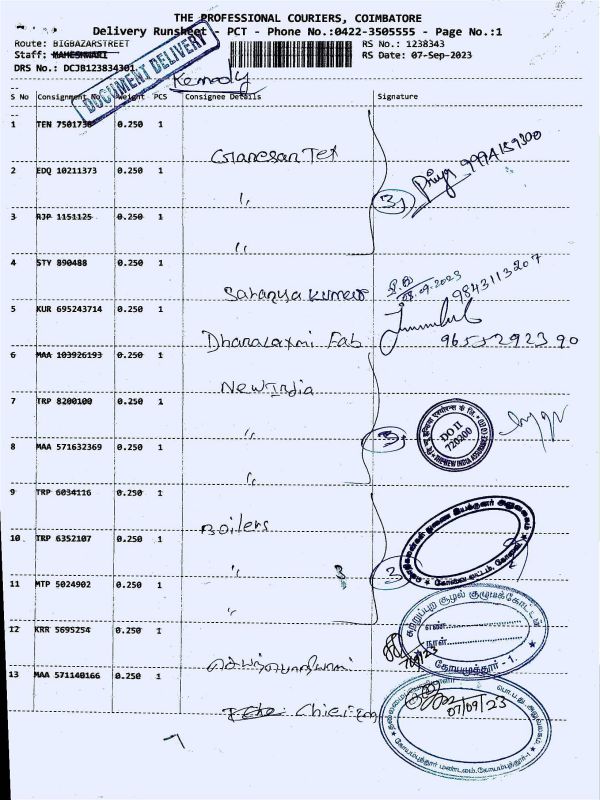 THE PROFESSIONAL COURIERS, COIMBATORE
Delivery Runsheet - PCT - Phone No.:0422-3505555 - Page No.:1
Route: BIGBAZARSTREET RS No.: 1238343
Staff: MAHESHWARI RS Date: 07-Sep-2023
DRS No.: DCJB123834301
DOCUMENT DELIVERY
S No Consignment No Weight PCS Consignee Details Signature
1 TEN 7501730 0.250 1
Ganesan Tex
2 EDQ 10211373 0.250 1
〃 3) Priya
3 RJP 1151125 0.250 1
〃
4 STY 890488 0.250 1
Saranya Kumar 08.09.2023 9843113207
5 KUR 695243714 0.250 1
Dhanalaxmi Fab 9655292390
6 MAA 103926193 0.250 1
New India
7 TRP 8200100 0.250 1
〃 3) DO II 720200
8 MAA 571632369 0.250 1
〃
9 TRP 6034116 0.250 1
Boilers
10 TRP 6352107 0.250 1
〃 3 3)
11 MTP 5024902 0.250 1
〃
12 KRR 5695254 0.250 1
எண்:
நாள்:
கோயமுத்தூர் - 1.
13 MAA 571140166 0.250 1
Chief Eng 07/09/23